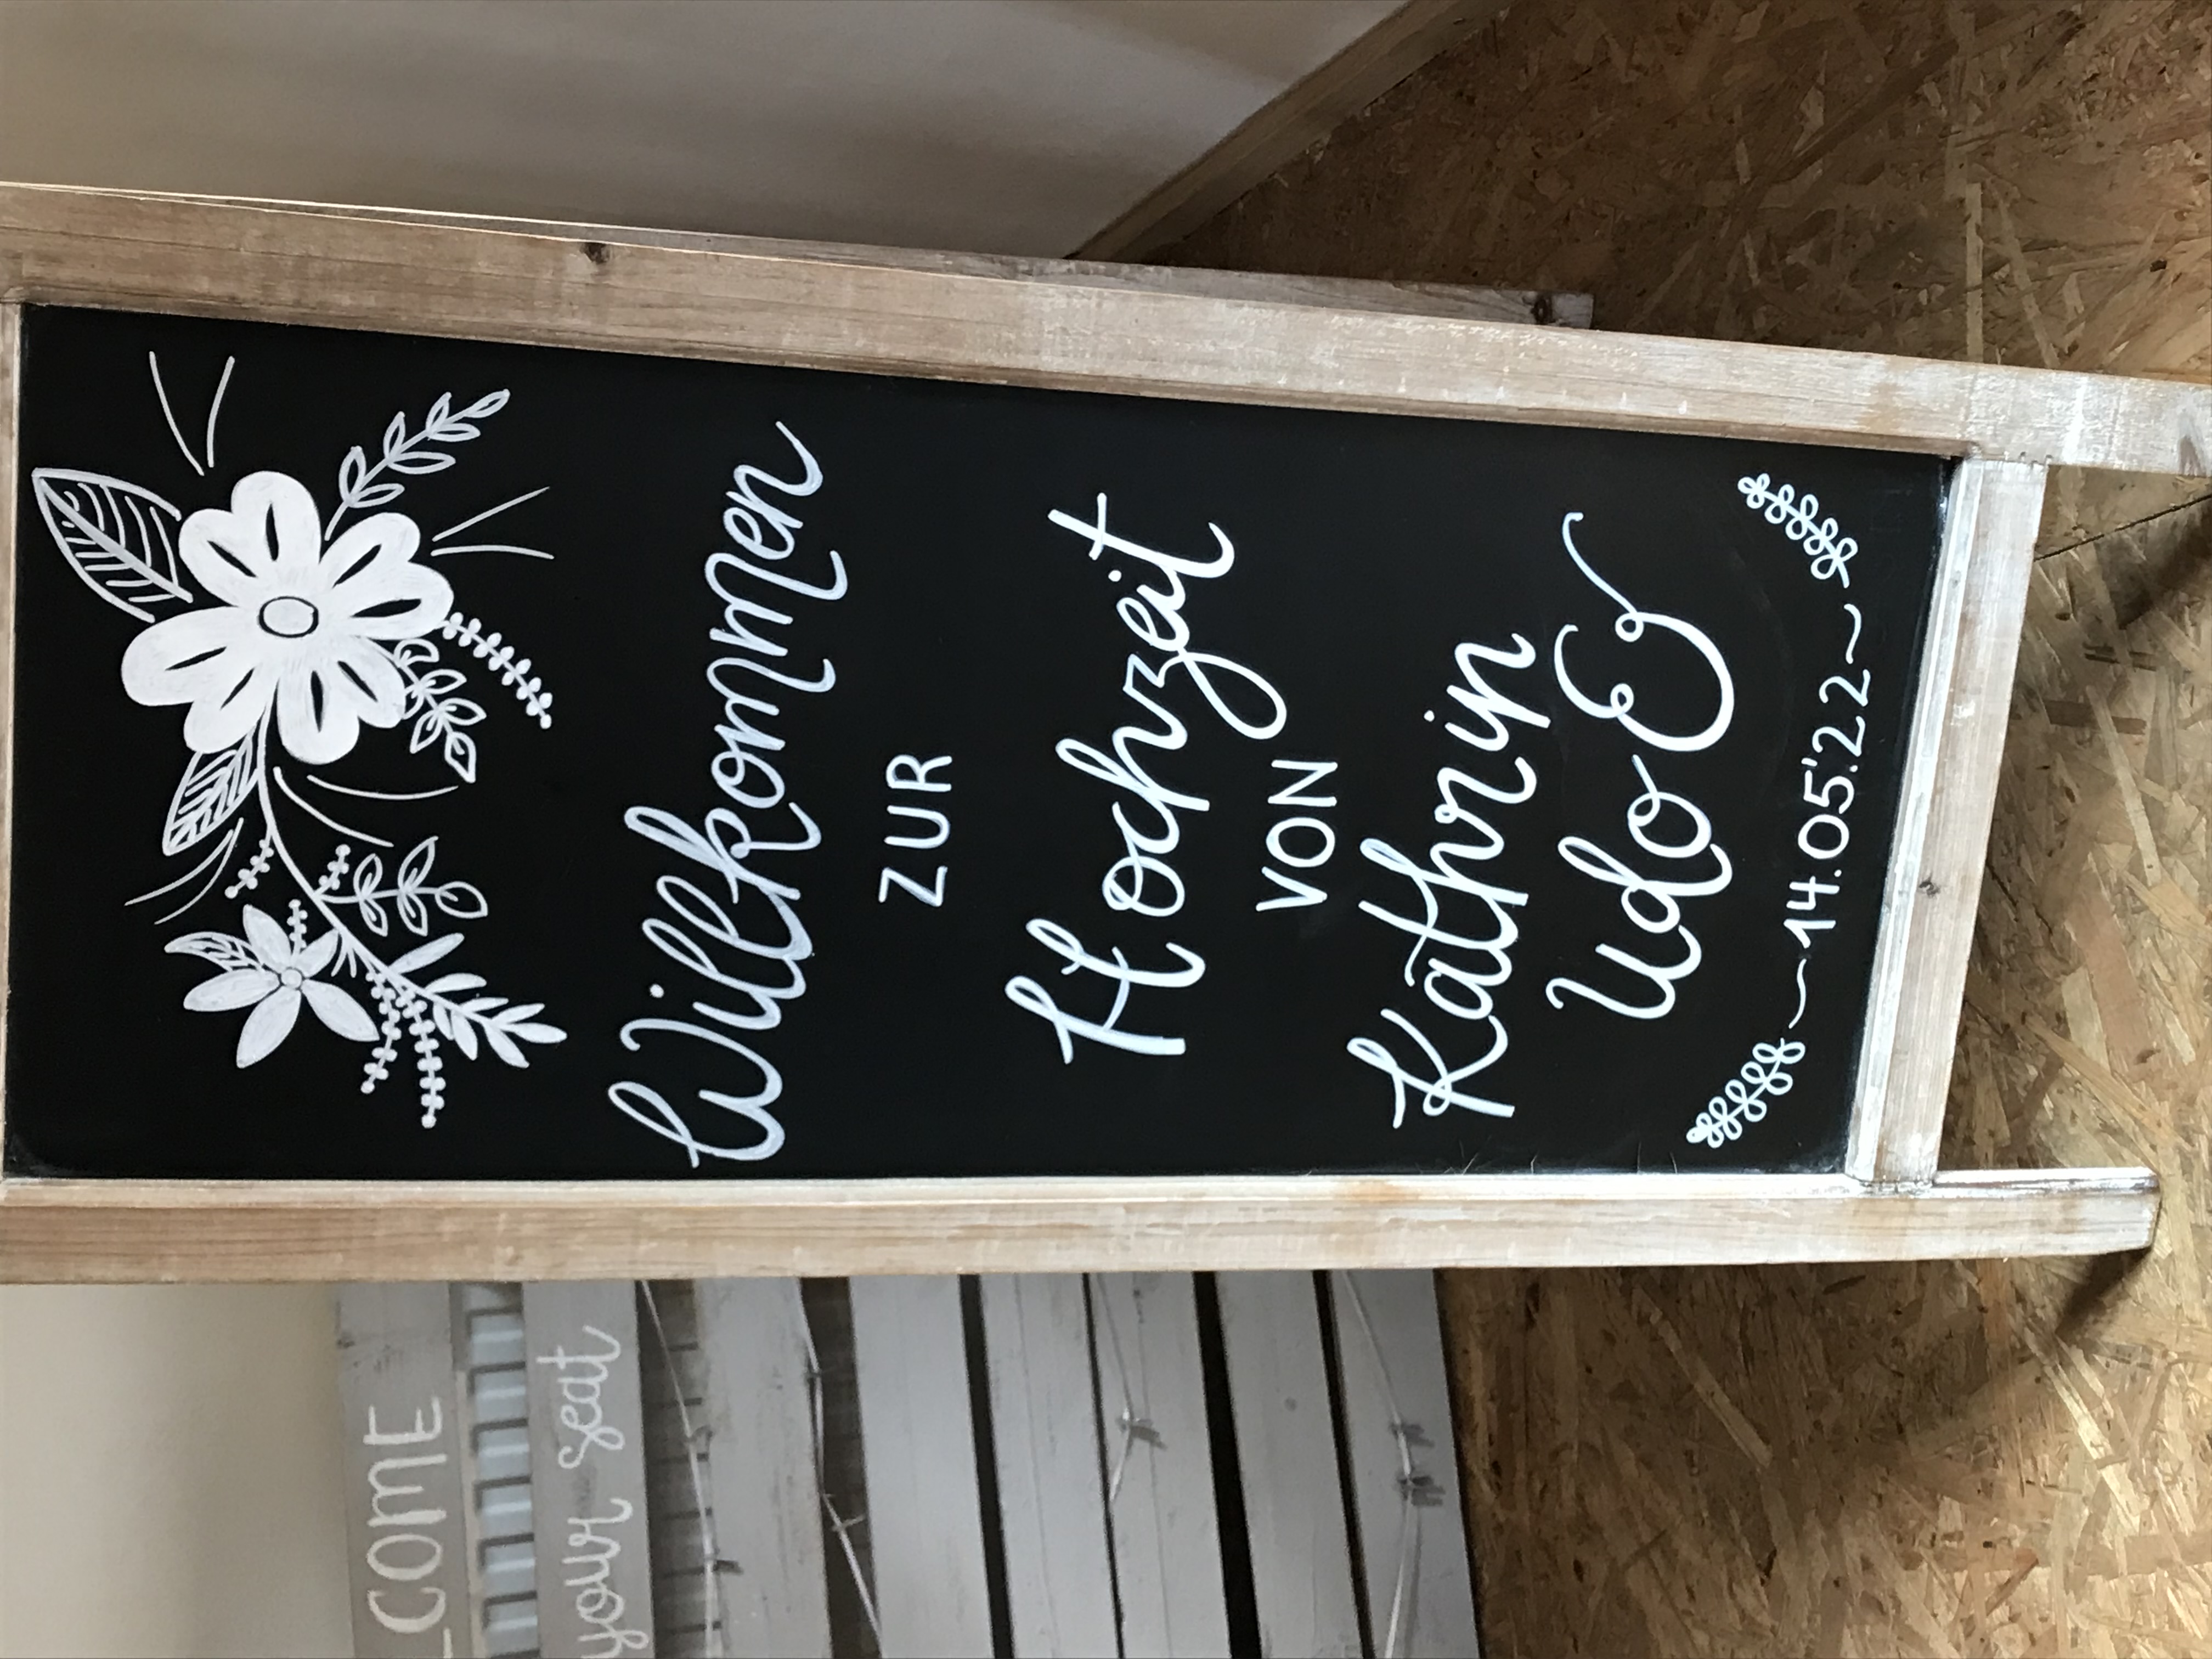 Willkommen
ZUR
Hochzeit
VON
Kathrin
Udo &
~14.05.'22~
COME
your seat